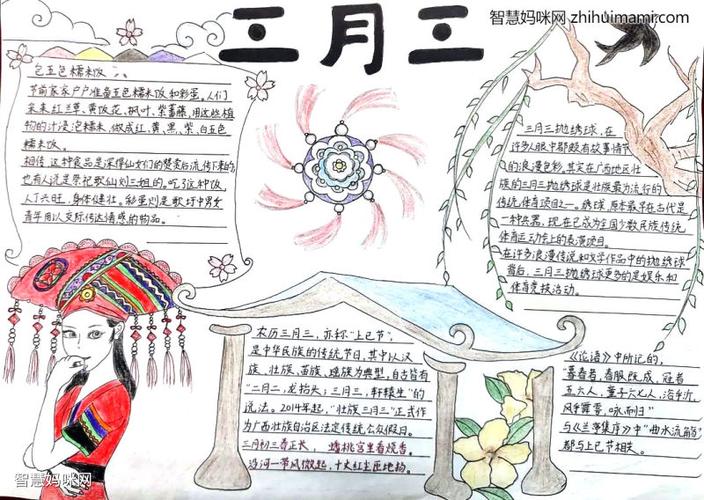 三月三
智慧妈咪网 zhihuimami.com
包五色糯米饭
节前家家户户准备五色糯米饭和彩蛋。人们
采来红兰草、黄饭花、枫叶、紫蕃藤,用这些植
物的汁浸泡糯米,做成红、黄、黑、紫、白五色
糯米饭。
相传,这种食品是深得仙女们的赞赏后流传下来的,
也有人说是祭祀歌仙刘三姐的。吃了这种饭,
人丁大旺,身体健壮。彩蛋则是歌圩中男女
青年用以交际传达情感的物品。
三月三抛绣球,在
许多人眼中都颇有故事情节
的浪漫色彩,其实在广西地区壮
族的三月三抛绣球是壮族最为流行的
传统体育项目之一。绣球,原本最早在古代是
一种兵器,现在已成为全国少数民族传统
体育运动会上的表演项目。
在许多浪漫传说和文学作品中的抛绣球
背后,三月三抛绣球更多的是娱乐和
体育竞技活动。
农历三月三,亦称"上巳节",
是中华民族的传统节日,其中以汉
族、壮族、苗族、瑶族为典型,自古皆有
"二月二,龙抬头;三月三,轩辕生"的
说法。2014年起,"壮族三月三"正式作
为广西壮族自治区法定传统公众假日。
三月初三春正长,蟠桃宫里看烧香。
沿河一带风微起,十丈红尘匝地扬。
《论语》中所记的,
暮春者,春服既成,冠者
五六人,童子六七人,浴乎沂,
风乎舞雩,咏而归"
与《兰亭集序》中"曲水流觞"
都与上巳节相关。
智慧妈咪网